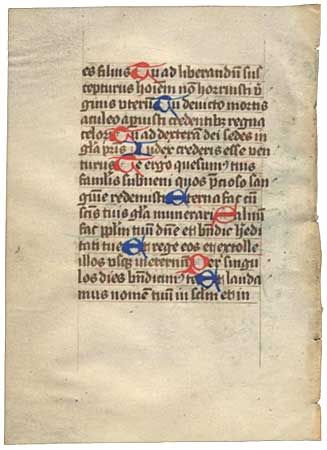 es filius Tu ad liberandū sus
cepturus hoīem nō horruisti v̄
ginis uterū Tu devicto mortis
aculeo apuisti credentibꝫ regna
celorū Tu ad dexterā dei sedes in
glā pr̄is Iudex crederis esse ven
turus Te ergo quesum⁹ tuis
famlis subveni quos p̄cioso san
guīe redemisti Eterna fac cū
sctīs tuis glā munerari Saluū
fac pplm̄ tuū dn̄e et bn̄dic hedi
tati tue Et rege eos et extolle
illos usqꝫ in eternū Per singu
los dies bn̄dicim⁹ te Et lauda
mus nomen tuū in sclm̄ et in